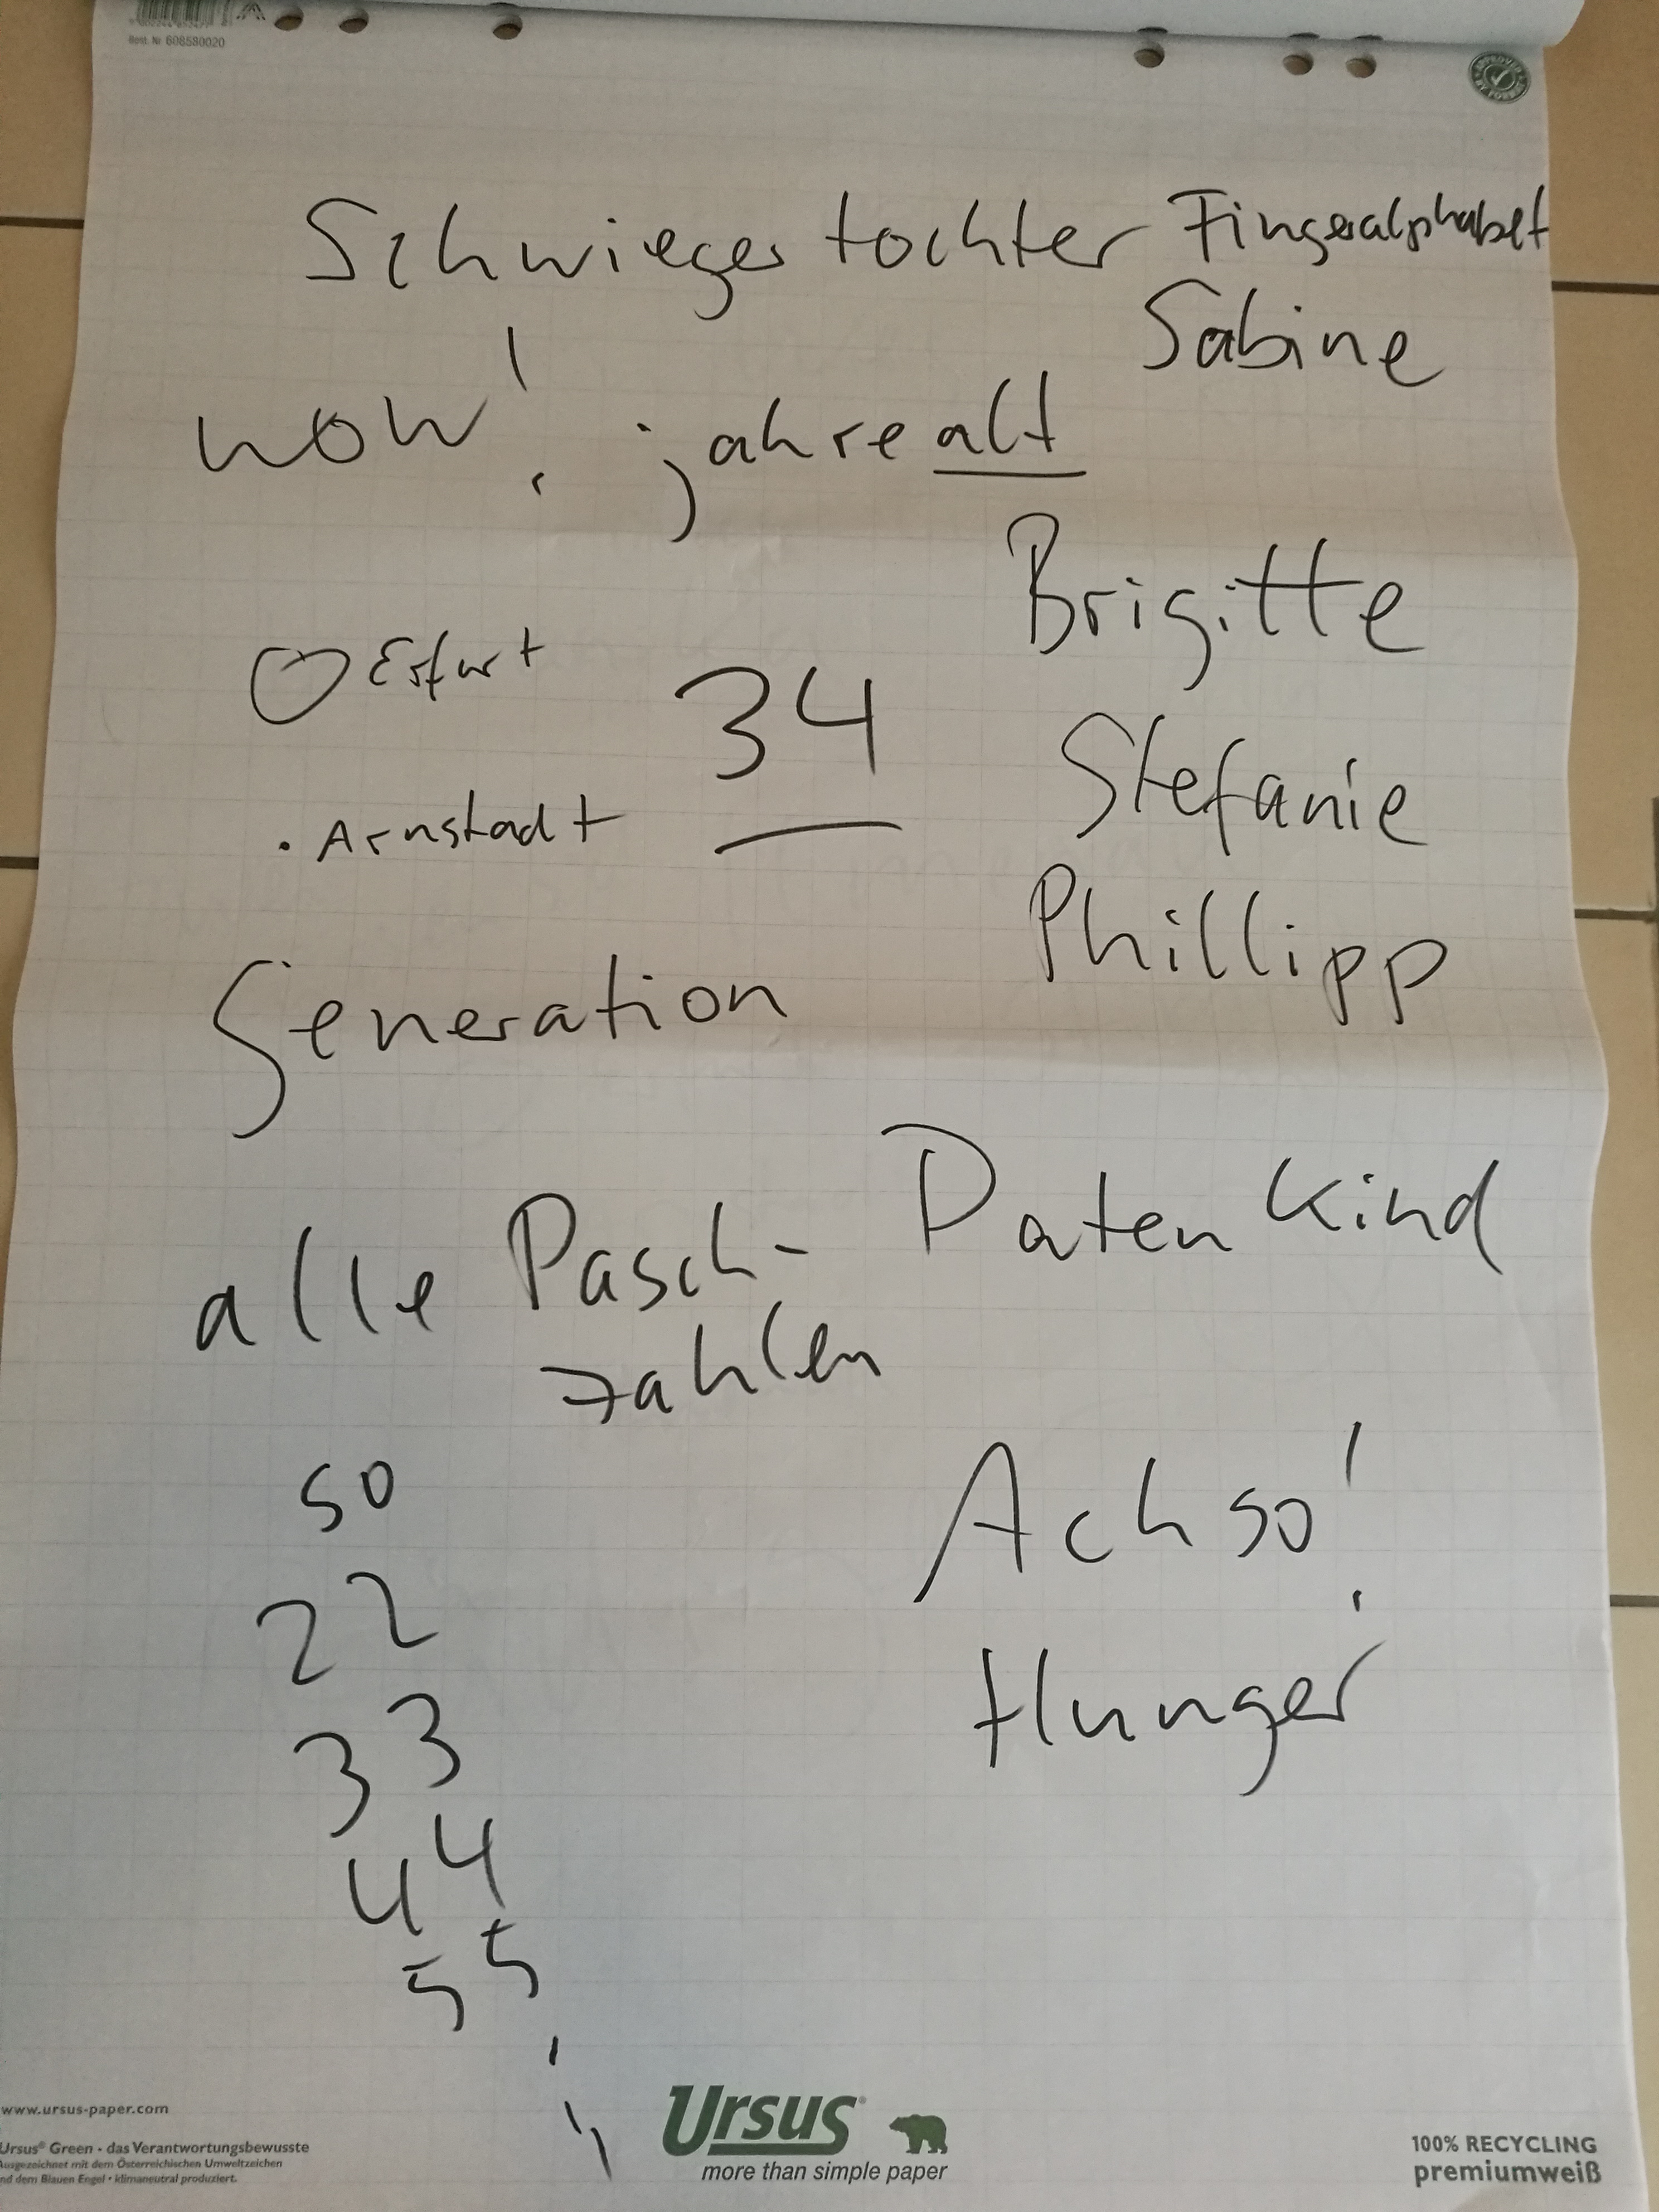 Best. Nr. 608580020
APPROVED BY FOREST
Schwiegertochter Fingeralphabet
Sabine
wow! jahre alt
Brigitte
Erfurt
34
Stefanie
Arnstadt
Phillipp
Generation
Patenkind
alle Pasch-
zahlen
Ach so!
50
22
Hunger
33
44
55
www.ursus-paper.com
Ursus® Green • das Verantwortungsbewusste
Ausgezeichnet mit dem Österreichischen Umweltzeichen
und dem Blauen Engel • klimaneutral produziert.
Ursus®
more than simple paper
100% RECYCLING
premiumweiß